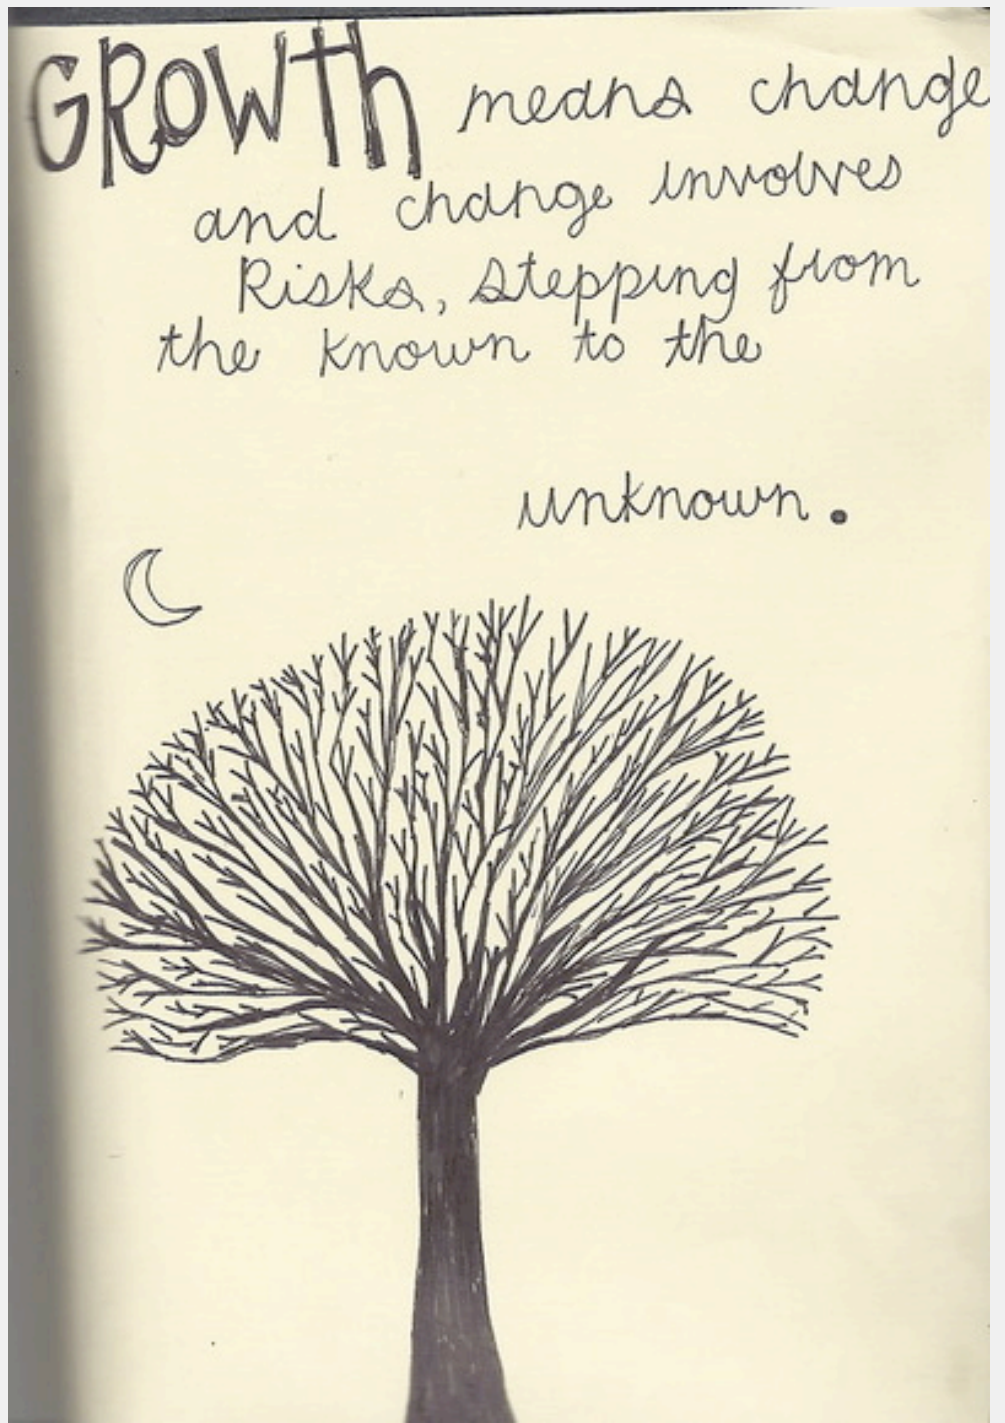 GRowth means change
and change involves
Risks, stepping from
the known to the
unknown.